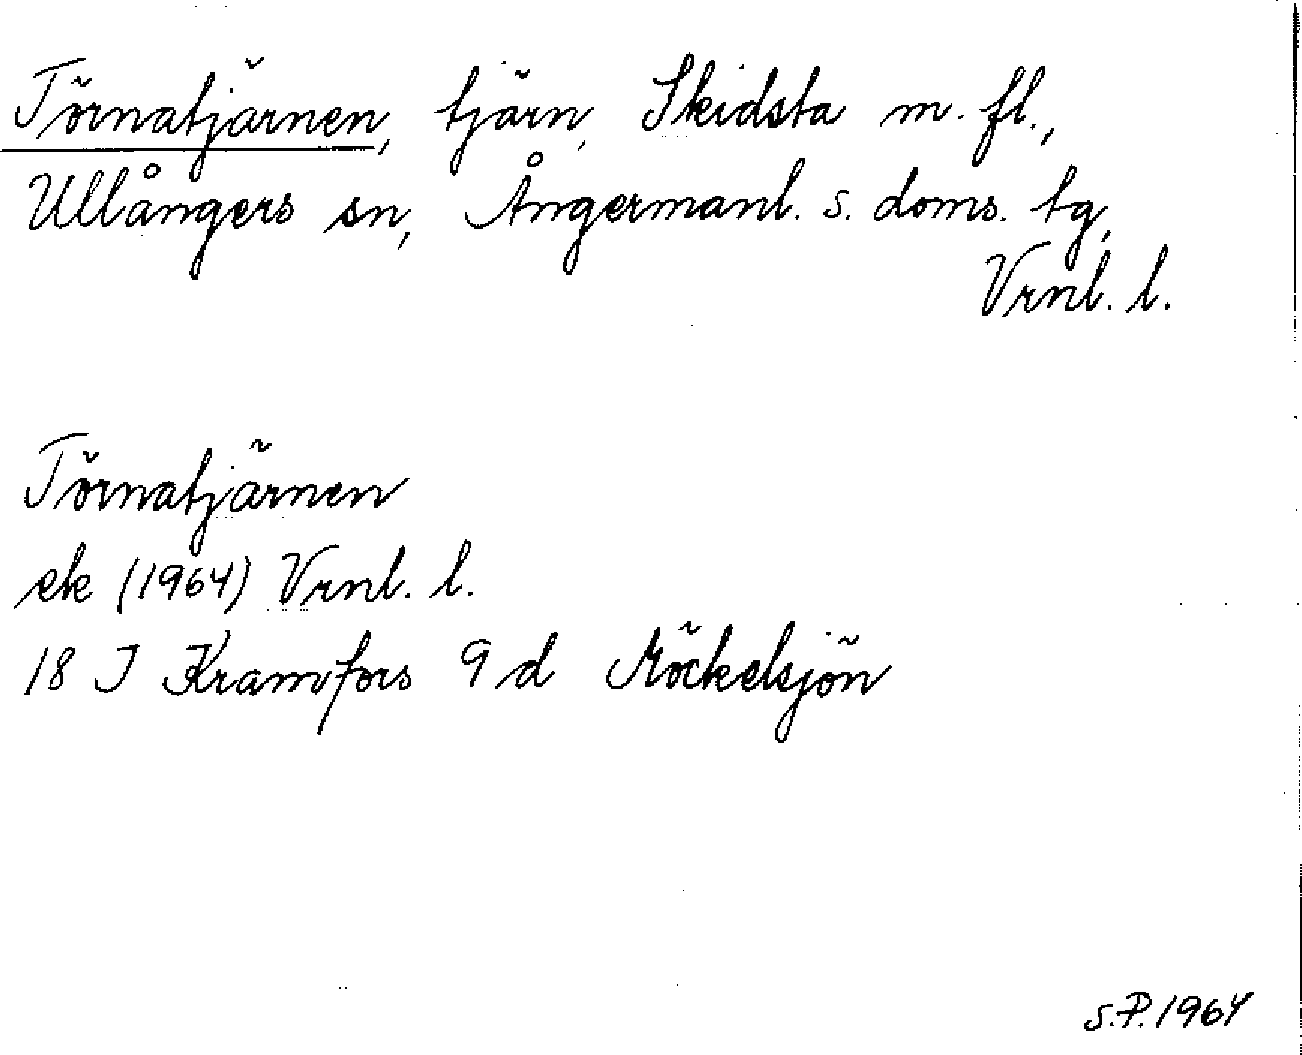 Törnatjärnen, tjärn, Skidsta m. fl.,
Ullångers sn, Ångermanl. s. doms. tg,
Vrnl. l.
Törnatjärnen
ek (1964) Vrnl. l.
18 J Kramfors 9 d Möckelsjön
S.P. 1964